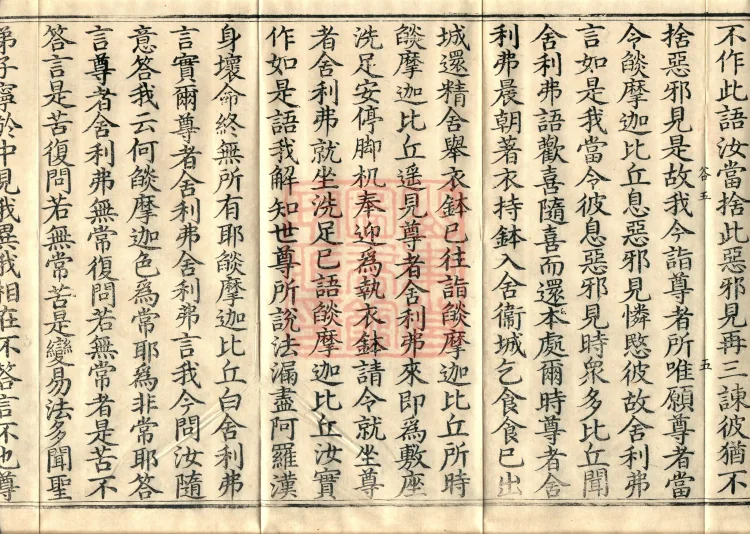 不作此語汝當捨此惡邪見再三諫彼猶不
捨惡邪見是故我今詣尊者所唯願尊者當
令燄摩迦比丘息惡邪見憐愍彼故舍利弗
言如是我當令彼息惡邪見時衆多比丘聞
舍利弗語歡喜隨喜而還本處爾時尊者舍
利弗晨朝著衣持鉢入舍衞城乞食食已出
城還精舍舉衣鉢已往詣燄摩迦比丘所時
燄摩迦比丘遥見尊者舍利弗來即爲敷座
洗足安停脚机奉迎爲執衣鉢請令就坐尊
者舍利弗就坐洗足已語燄摩迦比丘汝實
作如是語我解知世尊所說法漏盡阿羅漢
身壞命終無所有耶燄摩迦比丘白舍利弗
言實爾尊者舍利弗舍利弗言我今問汝隨
意答我云何燄摩迦色爲常耶爲非常耶答
言尊者舍利弗無常復問若無常者是苦不
答言是苦復問若無常苦是變易法多聞聖
弟子寧於中見我異我相在不答言不也尊
五